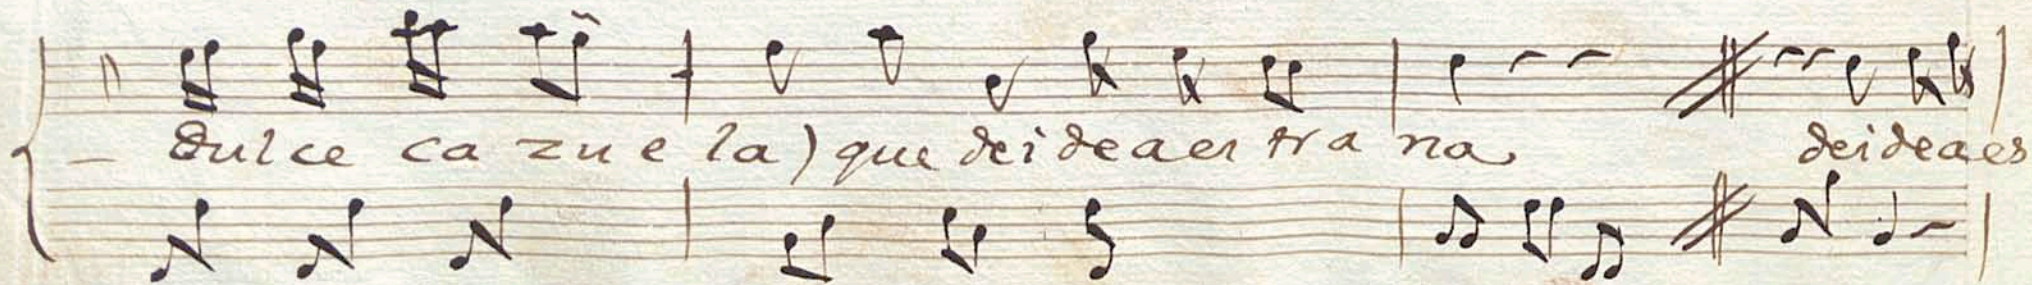 _ dulce ca zu e la) que deideaes tra na deideaes